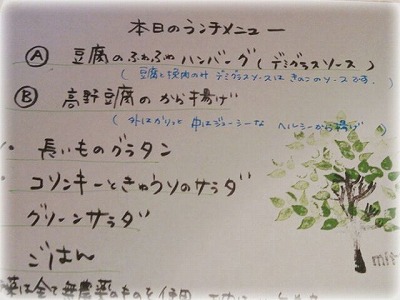 本日のランチメニュー
Ⓐ 豆腐のふわふわハンバーグ(デミグラスソース)
(豆腐と挽肉の デミグラスソースは きのこのソースです。)
Ⓑ 高野豆腐のから揚げ
(外はカリッと 中はジューシーな ヘルシーから揚げ)
・長いものグラタン
・コリンキーときゅうりのサラダ
グリーンサラダ
ごはん
菜は全て無農薬のものを使用